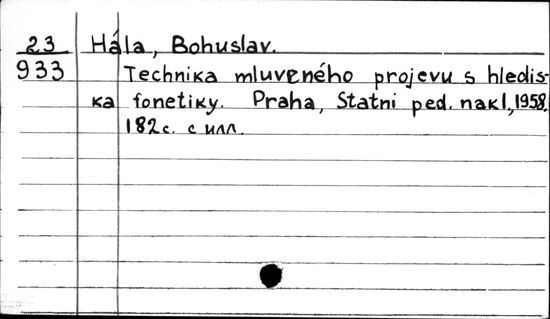 23 Hála, Bohuslav.
933 Technika mluveného projevu s hledis-
ka fonetiky. Praha, Statni ped. nakl, 1958.
182 с. с илл.